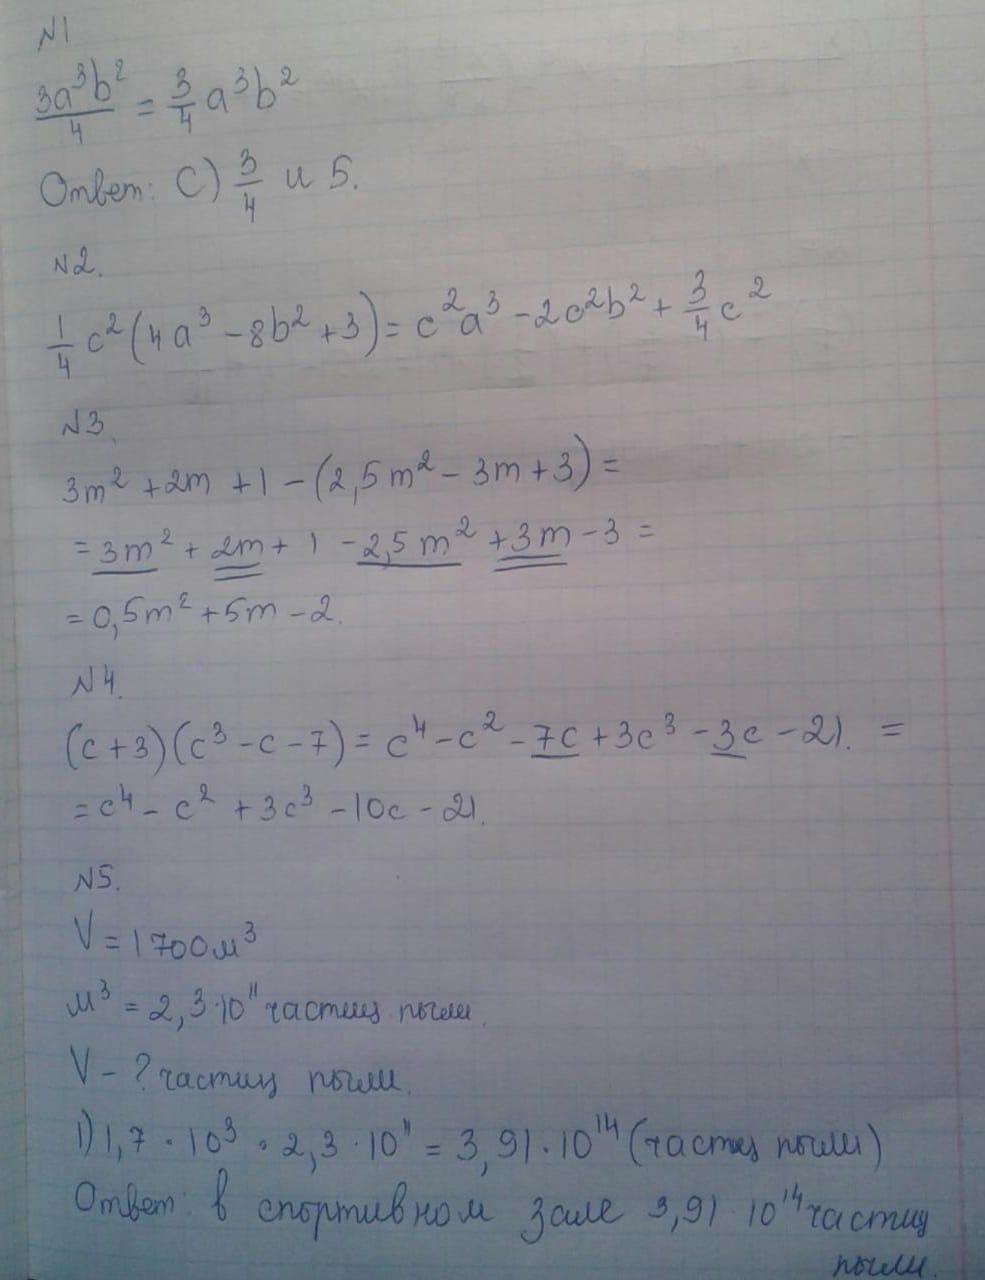 N1
3a³b²/4 = 3/4 a³b²
Ответ: С) 3/4 и 5.
N2.
1/4 c²(4a³ - 8b² + 3) = c²a³ - 2c²b² + 3/4 c²
N3.
3m² + 2m + 1 - (2,5m² - 3m + 3) =
= 3m² + 2m + 1 - 2,5m² + 3m - 3 =
= 0,5m² + 5m - 2.
N4.
(c + 3)(c³ - c - 7) = c⁴ - c² - 7c + 3c³ - 3c - 21. =
= c⁴ - c² + 3c³ - 10c - 21.
N5.
V = 1700м³
м³ = 2,3·10¹¹ частиц пыли.
V - ? частиц пыли.
1) 1,7 · 10³ · 2,3 · 10¹¹ = 3,91 · 10¹⁴ (частиц пыли)
Ответ: в спортивном зале 3,91 · 10¹⁴ частиц
пыли.